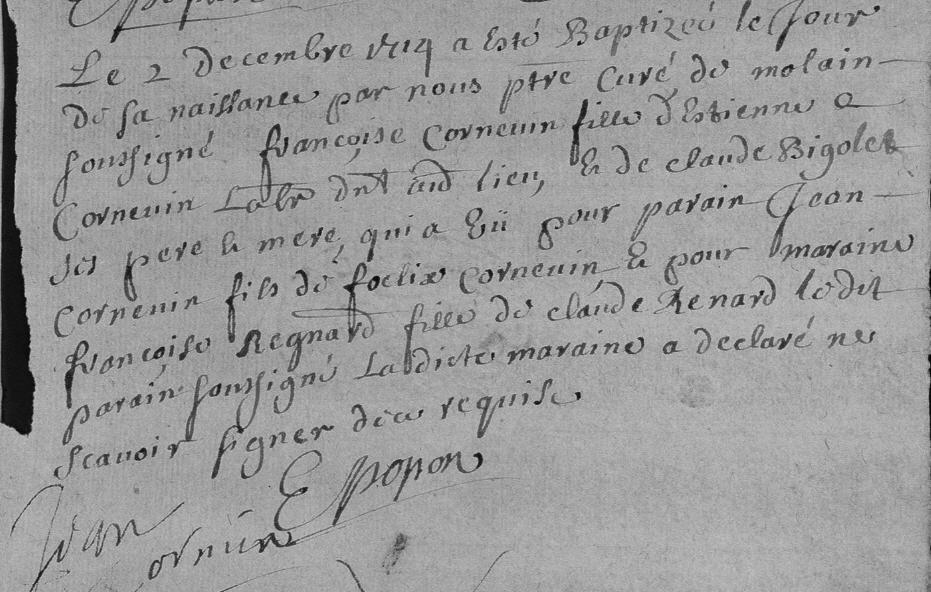 Le 2 decembre 1714 a Esté Baptizeé le Jour
de sa naissance par nous ptre Curé de molain
soussigné françoise Cornevin fille d'Estienne
Cornevin Labr dnt aud lieu, & de claude Bigolet
ses pere & mere, qui a Eü pour parain Jean
Cornevin fils de foelix Cornevin & pour maraine
françoise Regnard fille de claude Renard ledit
parain soussigné Ladicte maraine a declaré ne
scavoir signer de ce requise
E Popon
Jean
Cornuin